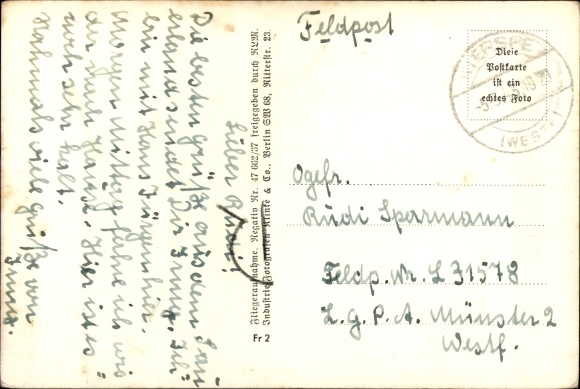 Lieber Rudi!
Die besten Grüße aus dem Sau-
erland sendet Dir Irmg. Ich
bin mit Hans Jürgen hier.
Morgen Mittag fahre ich wie-
der nach Hause. Hier ist es
noch sehr kalt.
Nochmals viele Grüße von
Irmg.
Fliegeraufnahme. Negativ Nr. 47 662/37 freigegeben durch RLM.
Industrie-Fotografen Klinke & Co., Berlin SW 68, Ritterstr. 23.
Fr 2
Feldpost
Diese
Postkarte
ist ein
echtes Foto
(WESTF.)
Ogefr.
Rudi Sparmann
Feldp. Nr. L 31578
L. G. P. A. Münster 2
Westf.